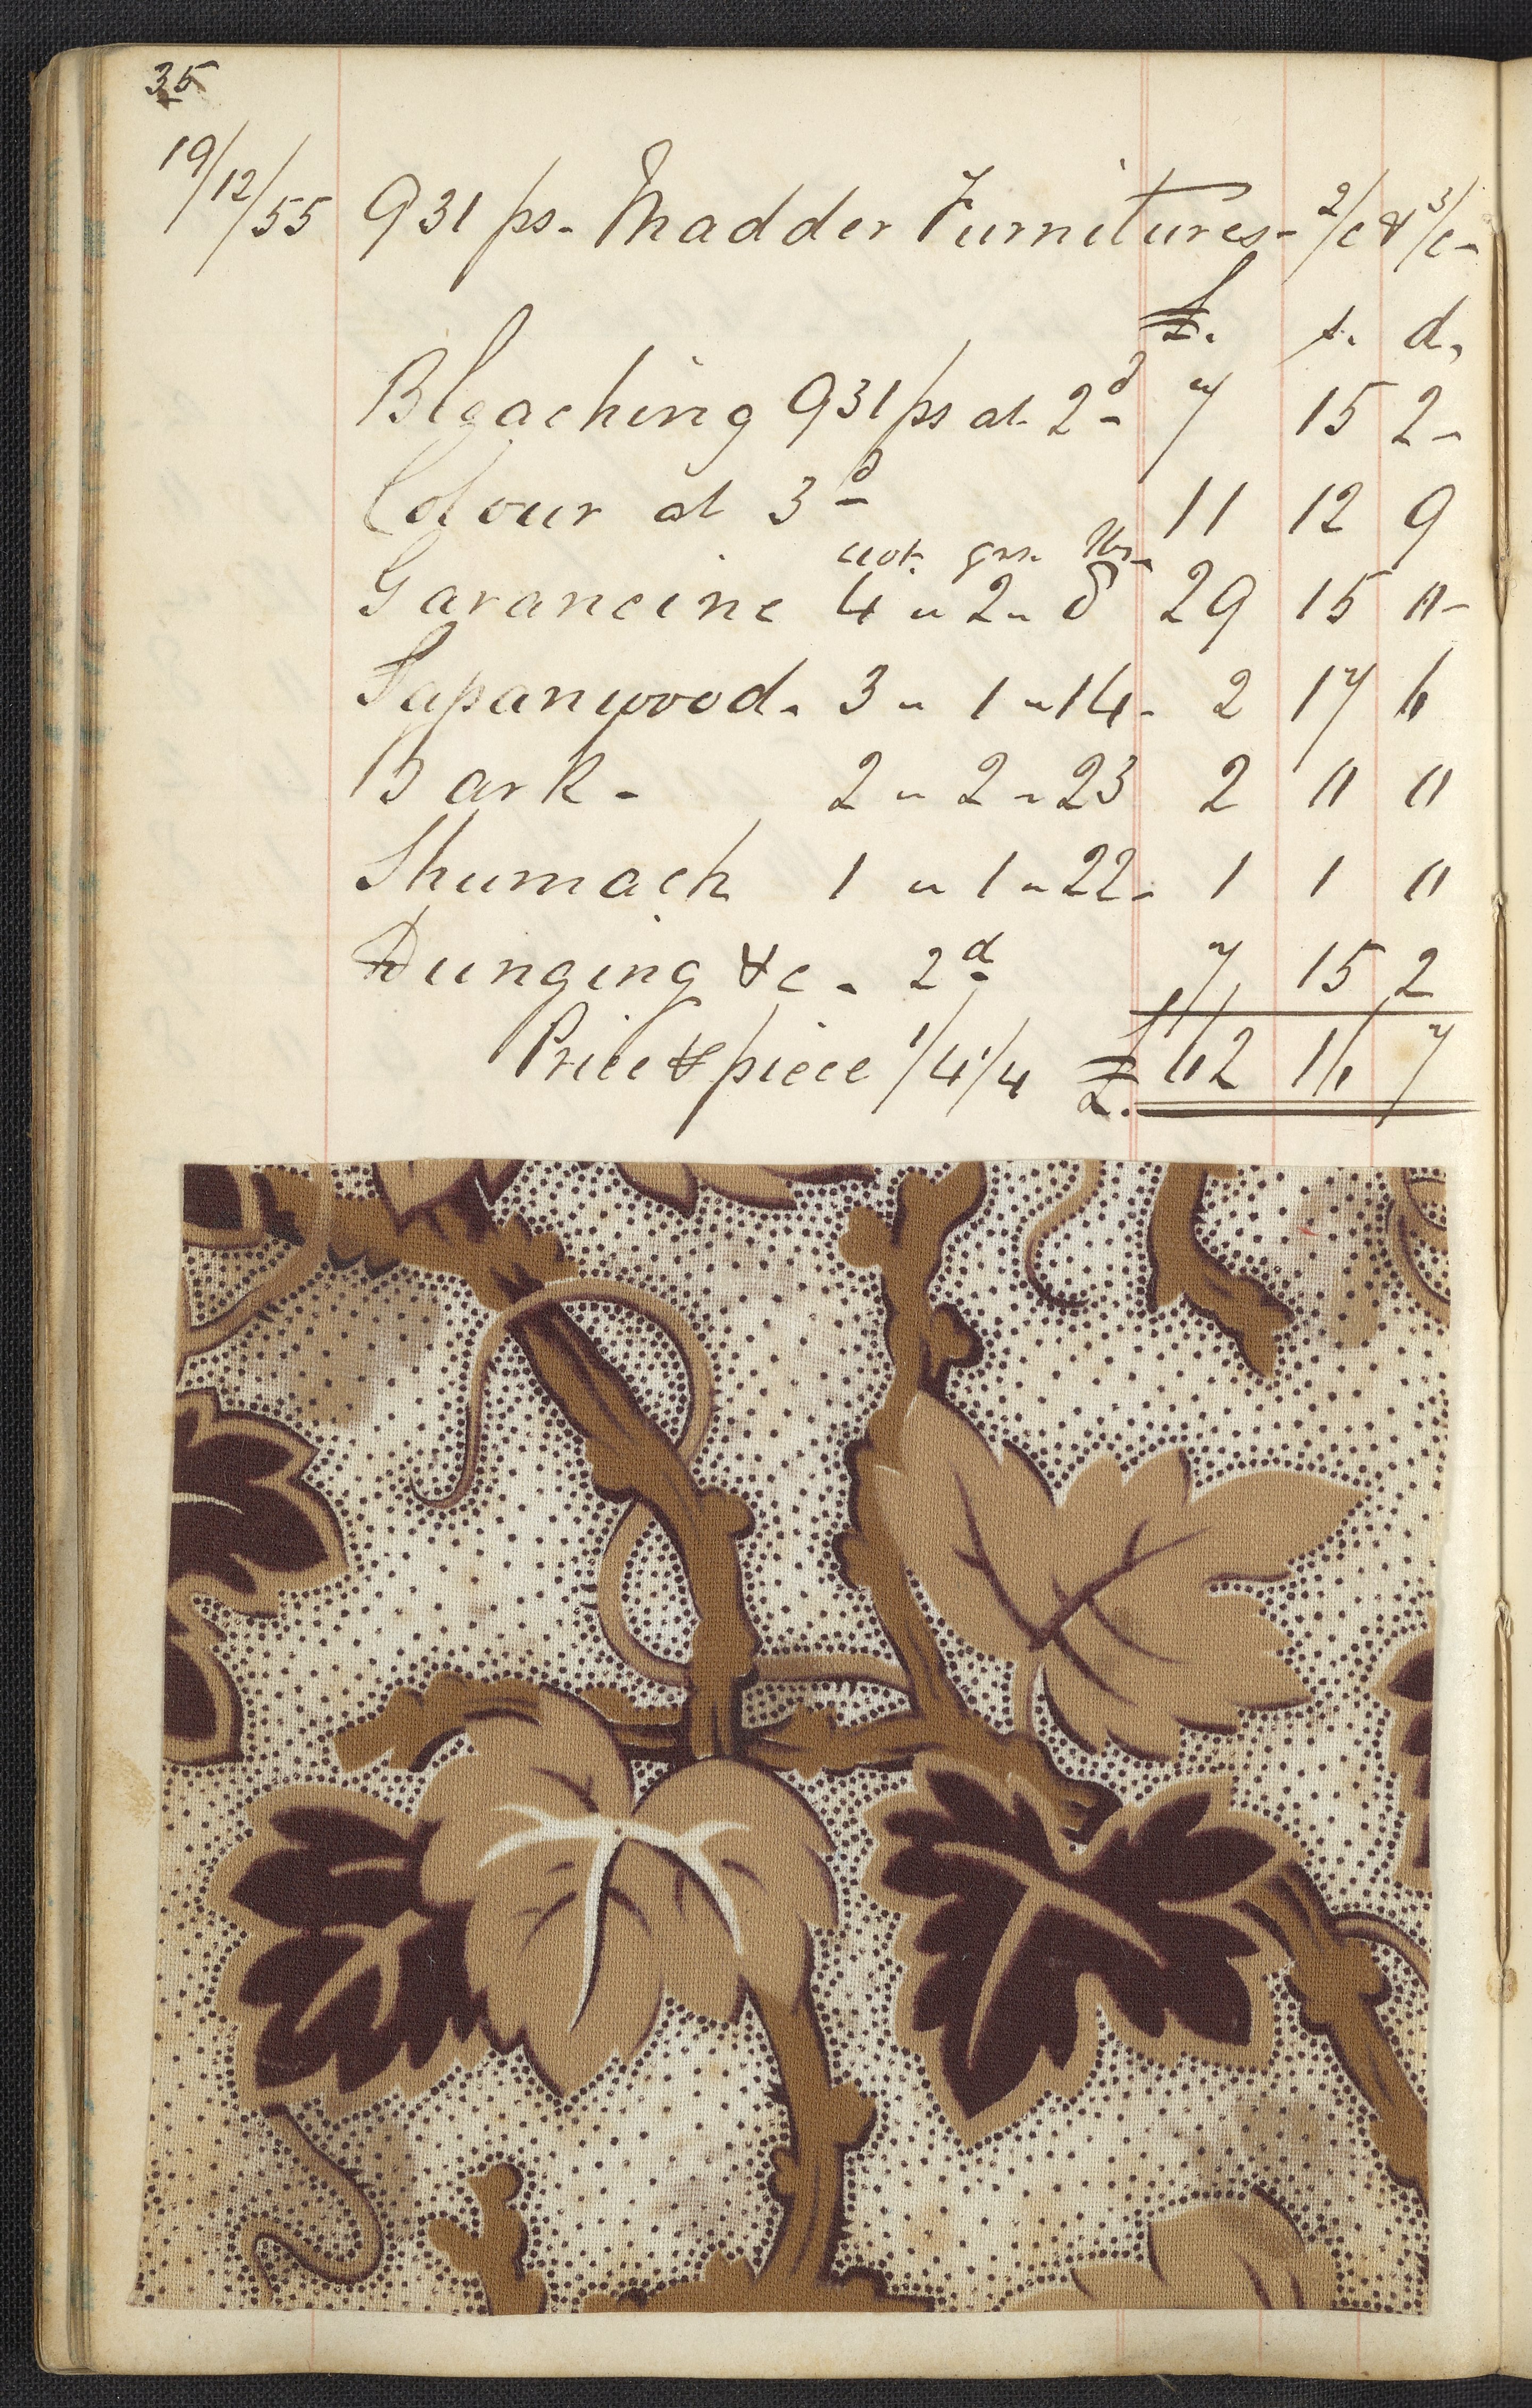 35
19/12/55 931 ps - Madder Furnitures - 2/c & 3/c -
£. s. d.
Bleaching 931 ps at 2d 7 15 2 -
Colour at 3d 11 12 9
cwt. qrs. lbs.
Garancine 4 " 2 " 8 29 15 " -
Sapanwood - 3 " 1 " 14 - 2 17 6
Bark - 2 " 2 " 23 2 " "
Shumach 1 " 1 " 22 - 1 1 "
Dunging &c - 2d 7 15 2
Price ⅌ piece 1/4 1/4 £. 62 16 7